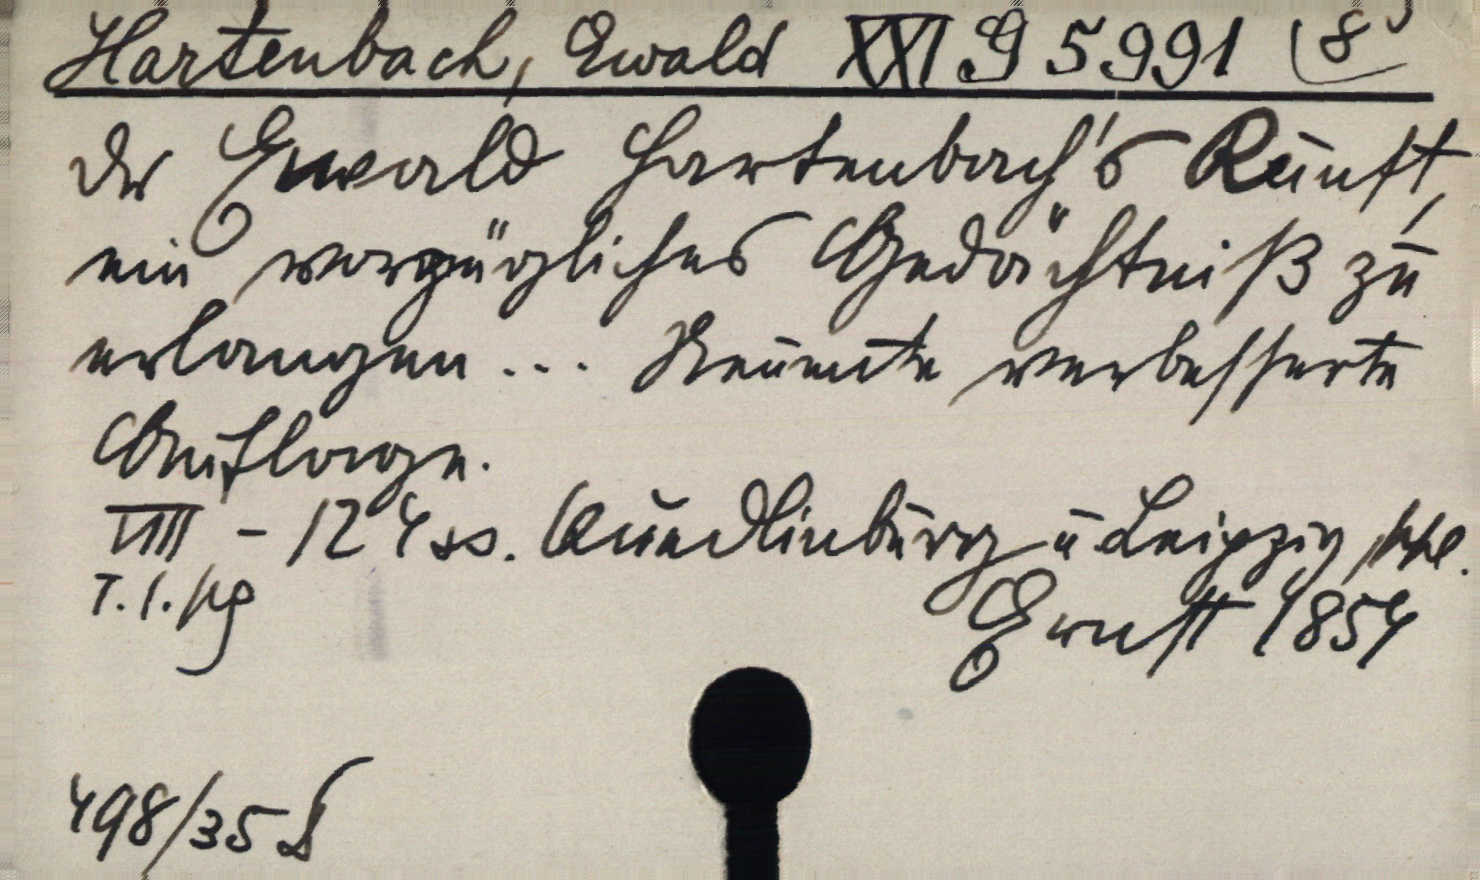 Hartenbach, Ewald XXI G 5991 (8°)
Dr Ewald Hartenbach's Kunst,
ein vorzügliches Gedächtniß zu
erlangen ... Neunte verbesserte
Auflage.
VIII – 124 ss. Quedlinburg u Leipzig,
Ernst 1854
498/35